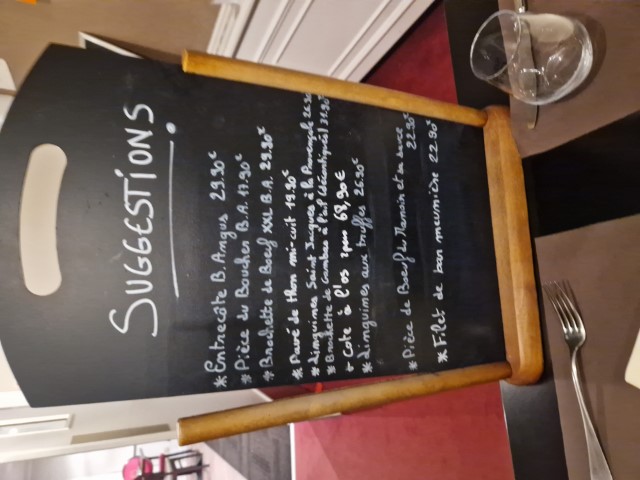 SUGGESTIONS
* Entrecôte B. Angus 29.90€
* Pièce du Boucher B.A. 17.90€
* Brochette de Boeuf XXL B.A. 29.90€
* Pavé de thon mi-cuit 19.90€
* Linguines Saint Jacques à la Provençale 26.90
* Brochette de Gambas à l'ail 31.90€
* Côte à l'os 2pers 69,90€
* Linguines aux truffes 26.90€
* Pièce de Boeuf du et sa sauce 22.90€
* Filet de bar meunière 22.90€